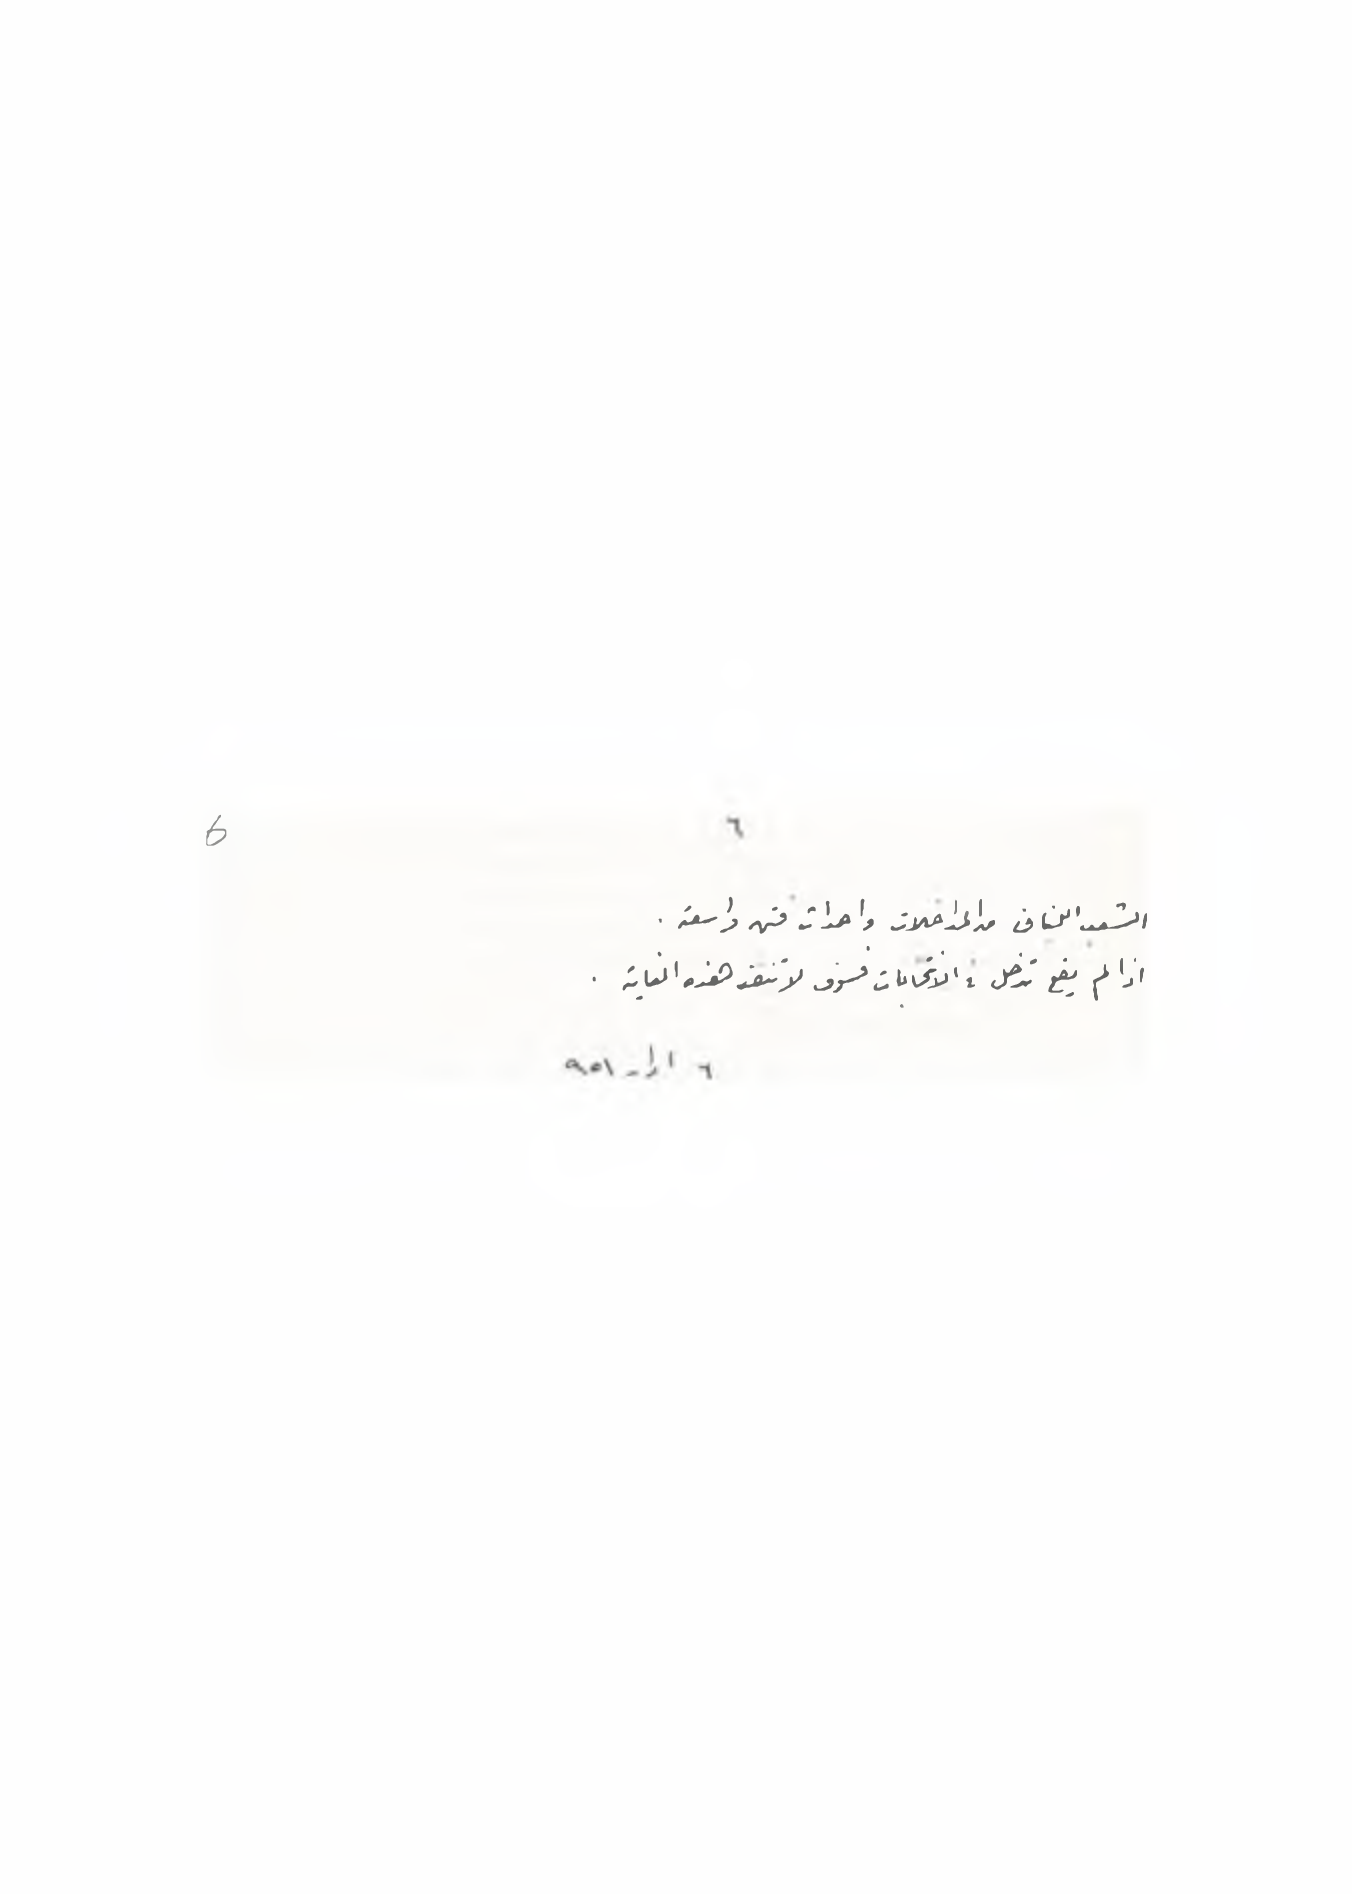 6
٦
الشعب اللبناني من المداخلات واحداث فتن واسعة .
اذا لم يقع تدخل في الانتخابات فسوف لا تنفذ هذه الغاية .
٦ ٩٥١